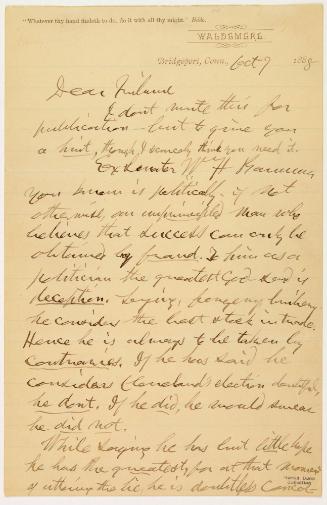 "Whatever thy hand findeth to do, do it with all thy might." Bible.
WALDEMERE.
Bridgeport, Conn., Oct 9 1888
Dear Friend
I don't write this for
publication — but to give you
a hint, though I scarcely think you need it.
Ex Senator Wm H Barnum
you know is politically, if not
otherwise, an unprincipled man who
believes that success can only be
obtained by fraud. To him as a
politician the greatest God-send is
deception. Lying, forgery, bribery
he considers the best stock in trade.
Hence he is always to be taken by
contraries. If he has said he
considers Cleveland's election doubtful,
he don't. If he did, he would swear
he did not.
While saying he has but little hope
he has the greatest, for at that moment
of uttering the lie, he is doubtless